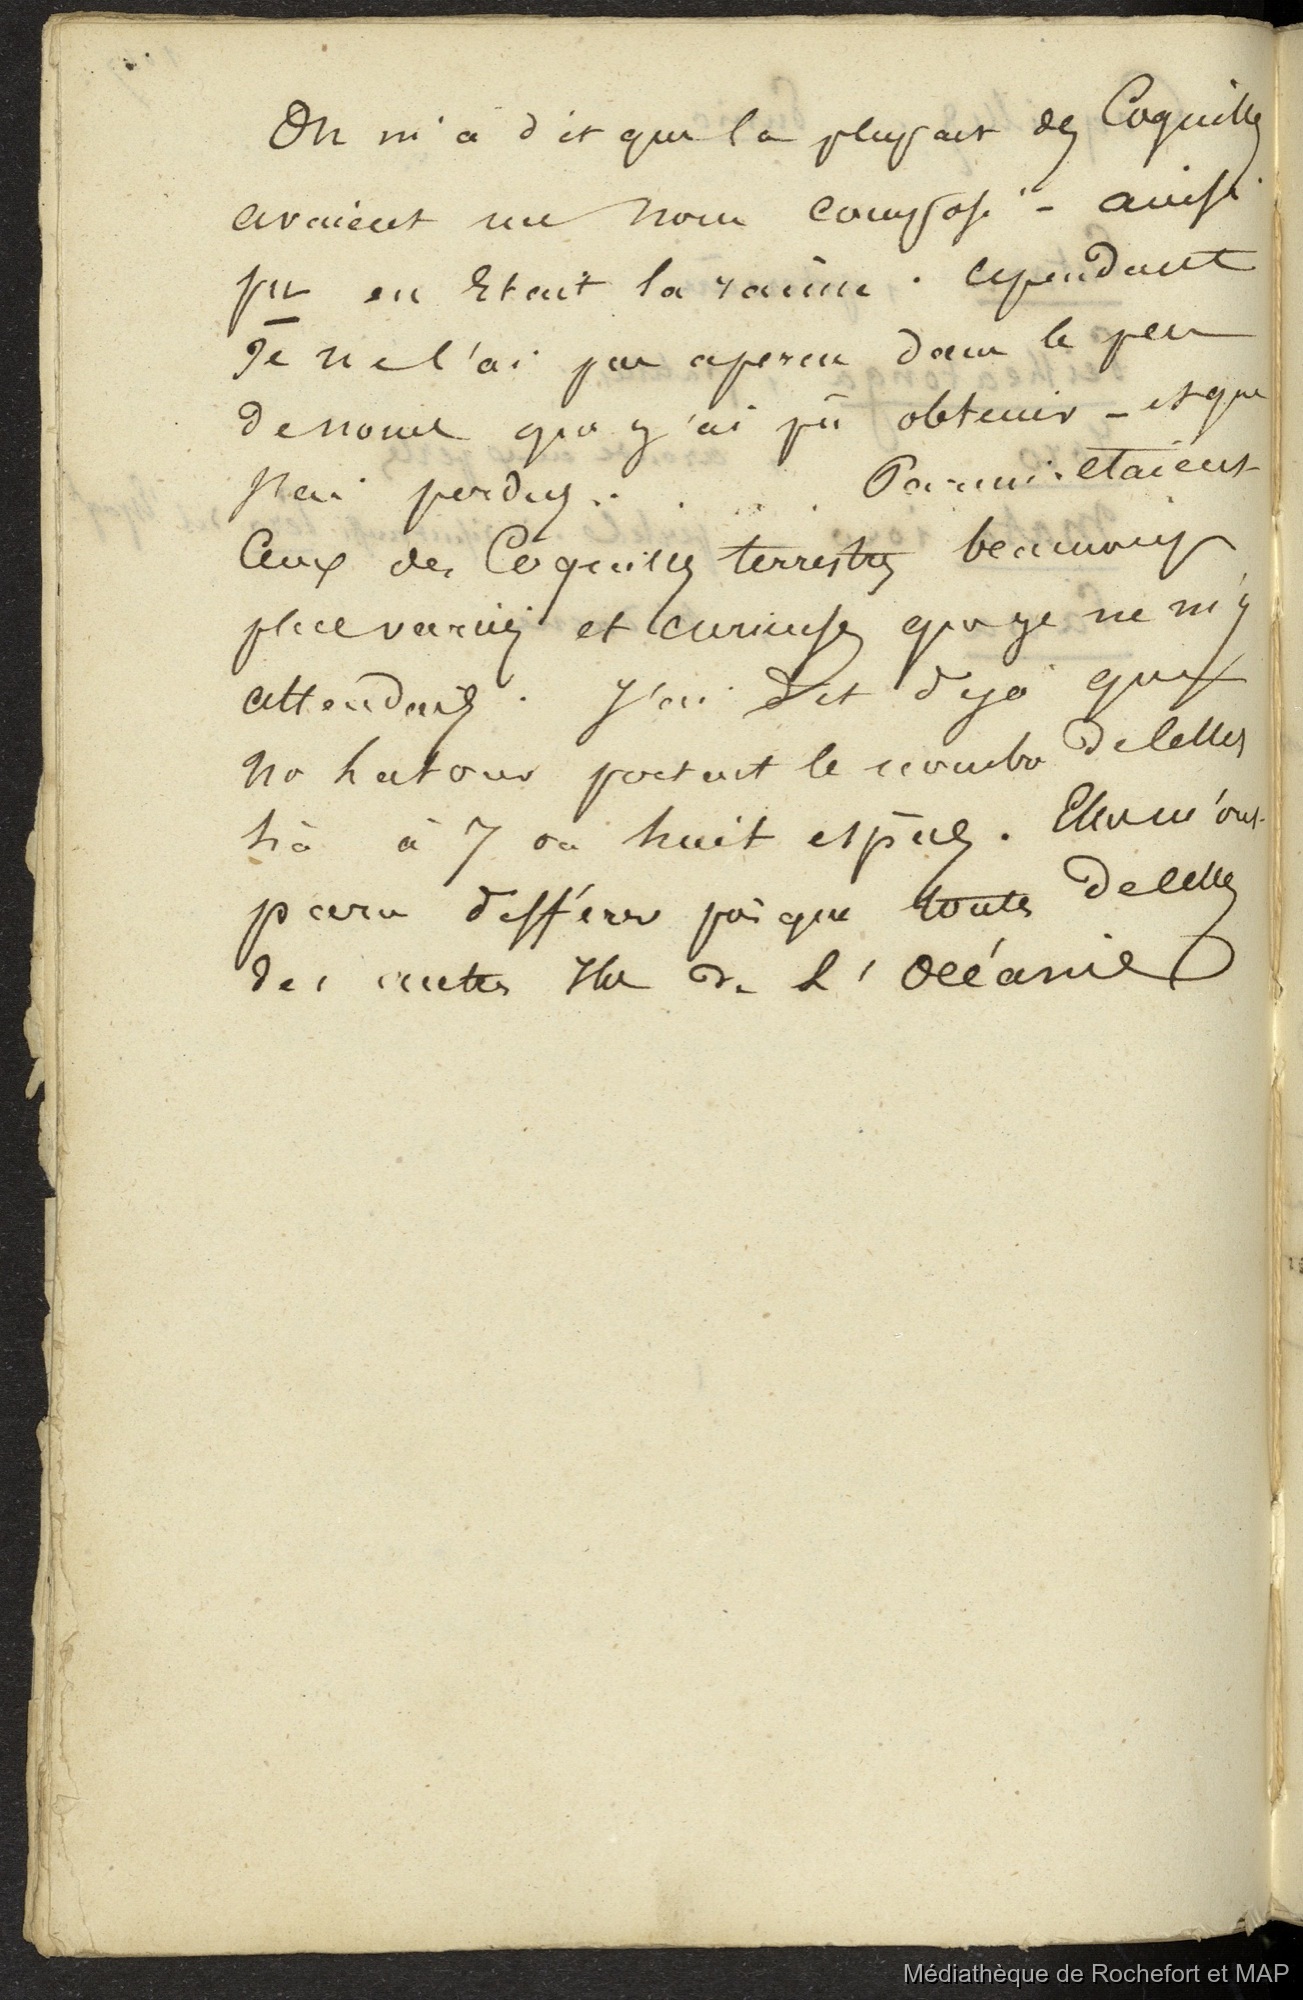 On m'a dit que la plupart des Coquilles
avaient un nom composé - ainsi
pu en Etait la racine. cependant
Je ne l'ai pas aperçu dans le peu
de noms que j'ai pû obtenir - et que
j'ai perdus . . . . Parmi etaient
Ceux des Coquilles terrestres beaucoup
plus variées et curieuses que je ne m'y
attendais. J'ai dit déjà que
no hatour portait le nombre de celles
à 7 ou huit espèces. Elles m'ont
paru différer presque toutes de celles
des autres Iles de l'Océanie
Médiathèque de Rochefort et MAP